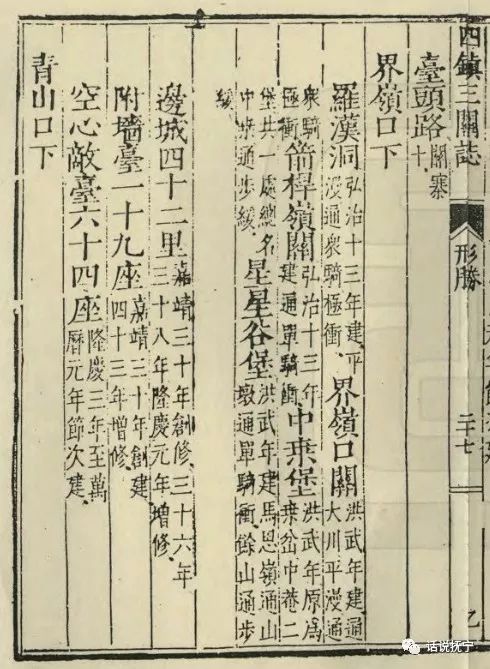 四鎮三關誌 形勝 二十七
臺頭路關寨十
界嶺口下
羅漢洞弘治十三年建平漫通衆騎極衝界嶺口關洪武年建通大川平漫通
衆騎極衝箭桿嶺關弘治十三年建通單騎衝中桒堡洪武年原爲桒岔中菴二
堡共一處總名中桒通步緩星星谷堡洪武年建馬思嶺通山墩通單騎衝餘山通步
緩
邊城四十二里嘉靖三十年創修三十六年三十八年隆慶元年增修
附墻臺一十九座嘉靖三十年創建四十三年增修
空心敵臺六十四座隆慶三年至萬曆元年節次建
青山口下
话说抚宁